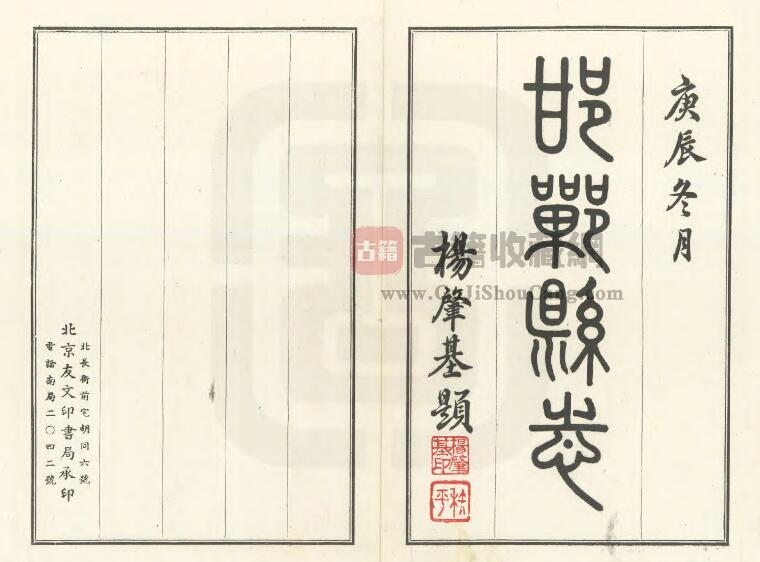 庚辰冬月
邯鄲縣志
楊肇基題
楊肇基印
北長街前宅胡同六號
北京友文印書局承印
電話南局二〇四二號
古籍
古籍收藏網
www.GuJiShouCang.com